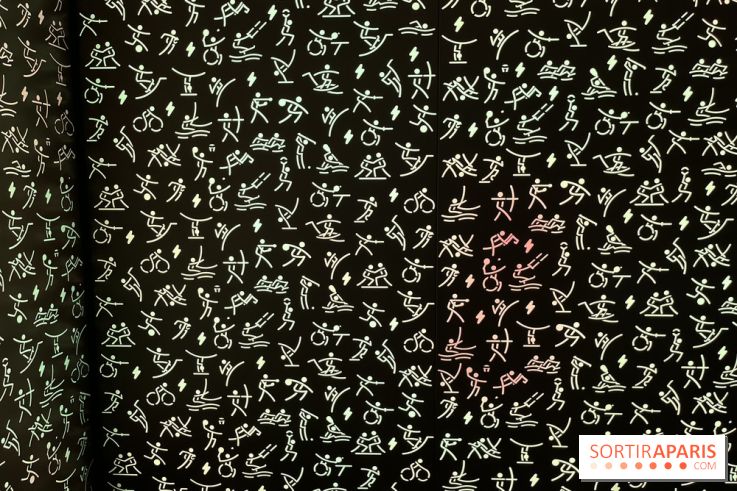 SORTIRAPARIS
.COM